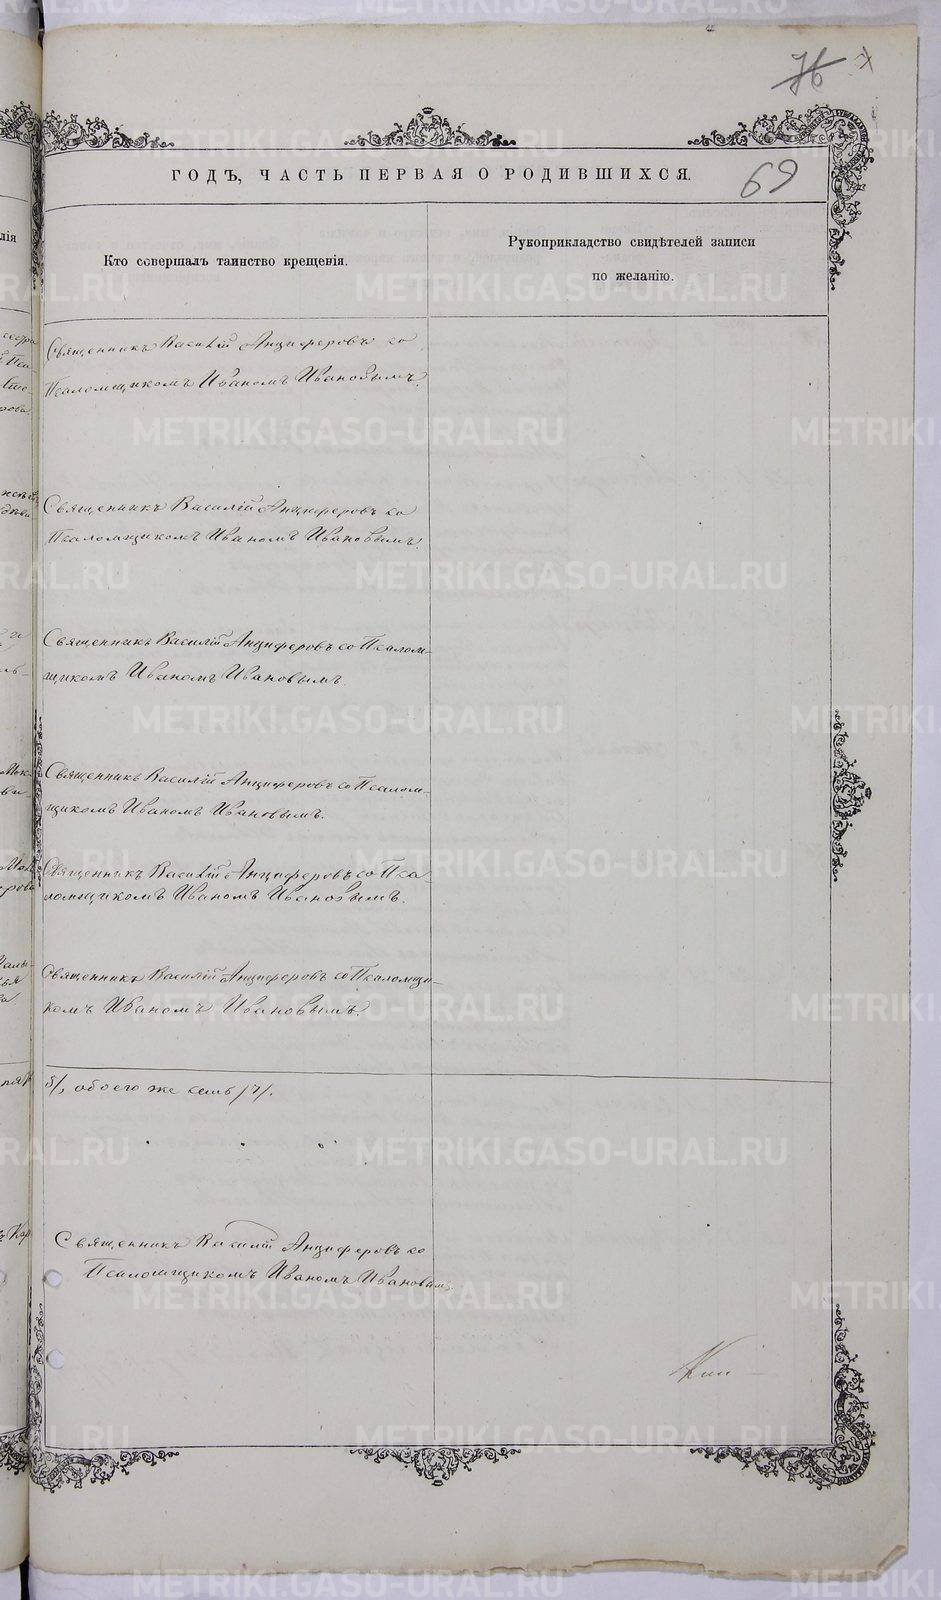 76
69
ГОДЪ, ЧАСТЬ ПЕРВАЯ О РОДИВШИХСЯ.
Кто совершалъ таинство крещенія.
Рукоприкладство свидѣтелей записи
по желанію.
Священникъ Василій Анциферовъ со
Псаломщикомъ Иваномъ Ивановымъ.
Священникъ Василій Анциферовъ со
Псаломщикомъ Иваномъ Ивановымъ.
Священникъ Василій Анциферовъ со Псалом-
щикомъ Иваномъ Ивановымъ
Священникъ Василій Анциферовъ со Псалом-
щикомъ Иваномъ Ивановымъ.
Священникъ Василій Анциферовъ со Пса-
ломщикомъ Иваномъ Ивановымъ.
Священникъ Василій Анциферовъ со Псаломщи-
комъ Иваномъ Ивановымъ.
обоего же семь /7/.
Священникъ Василій Анциферовъ со
Псаломщикомъ Иваномъ Ивановым.
METRIKI.GASO-URAL.RU